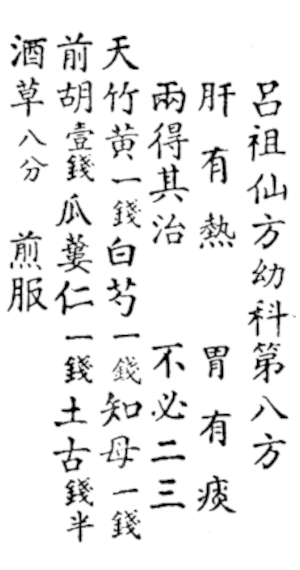 呂祖仙方幼科第八方
肝有熱 胃有痰
兩得其治 不必二三
天竹黃一錢白芍一錢知母一錢
前胡壹錢瓜蔞仁一錢土古錢半
酒草八分 煎服